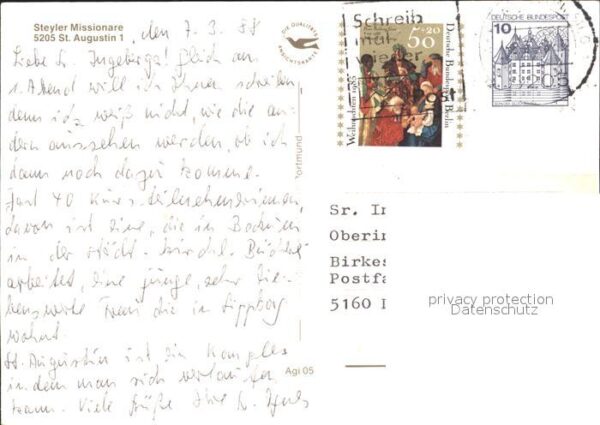 Steyler Missionare
5205 St. Augustin 1
den 7.3.88
Liebe Sr. Ingeborga! Gleich am
1. Abend will ich Ihnen schreiben,
denn ich weiß nicht, wie die an-
dern aussehen werden, ob ich
dann noch dazu komme.
Fast 40 Kursteilnehmerinnen,
davon ist eine, die in Bochum
in der städt. kirchl. Bücherei
arbeitet, eine junge, sehr lie-
benswerte Frau die in Lippborg
wohnt.
St. Augustin ist ein Komplex
in dem man sich verlaufen
kann. Viele Grüße Ihre Sr. Agnes
DIE QUALITÄTS
ANSICHTSKARTE
ortmund
Agi 05
Schreib
mal
wieder
Post
50+20
Deutsche Bundespost Berlin
Weihnachten 1985
10
DEUTSCHE BUNDESPOST
5205
Sr. In
Oberin
Birkes
Postfa
5160
privacy protection
Datenschutz